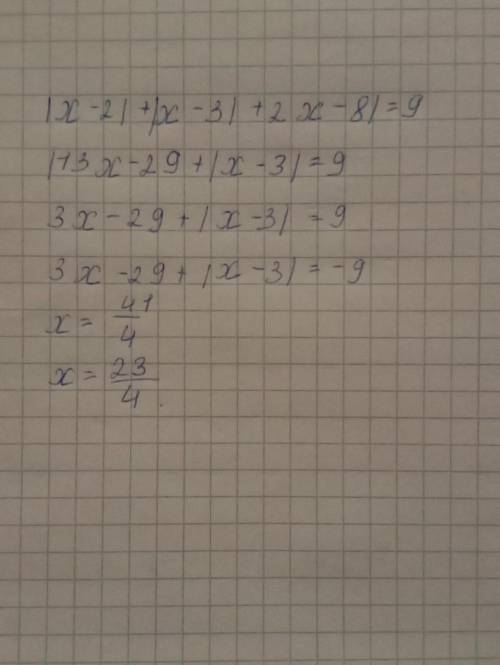 |x - 2| + |x - 3| + 2 x - 8| = 9
|+3x - 29 + |x - 3| = 9
3x - 29 + |x - 3| = 9
3x - 29 + |x - 3| = -9
x = 41/4
x = 23/4.